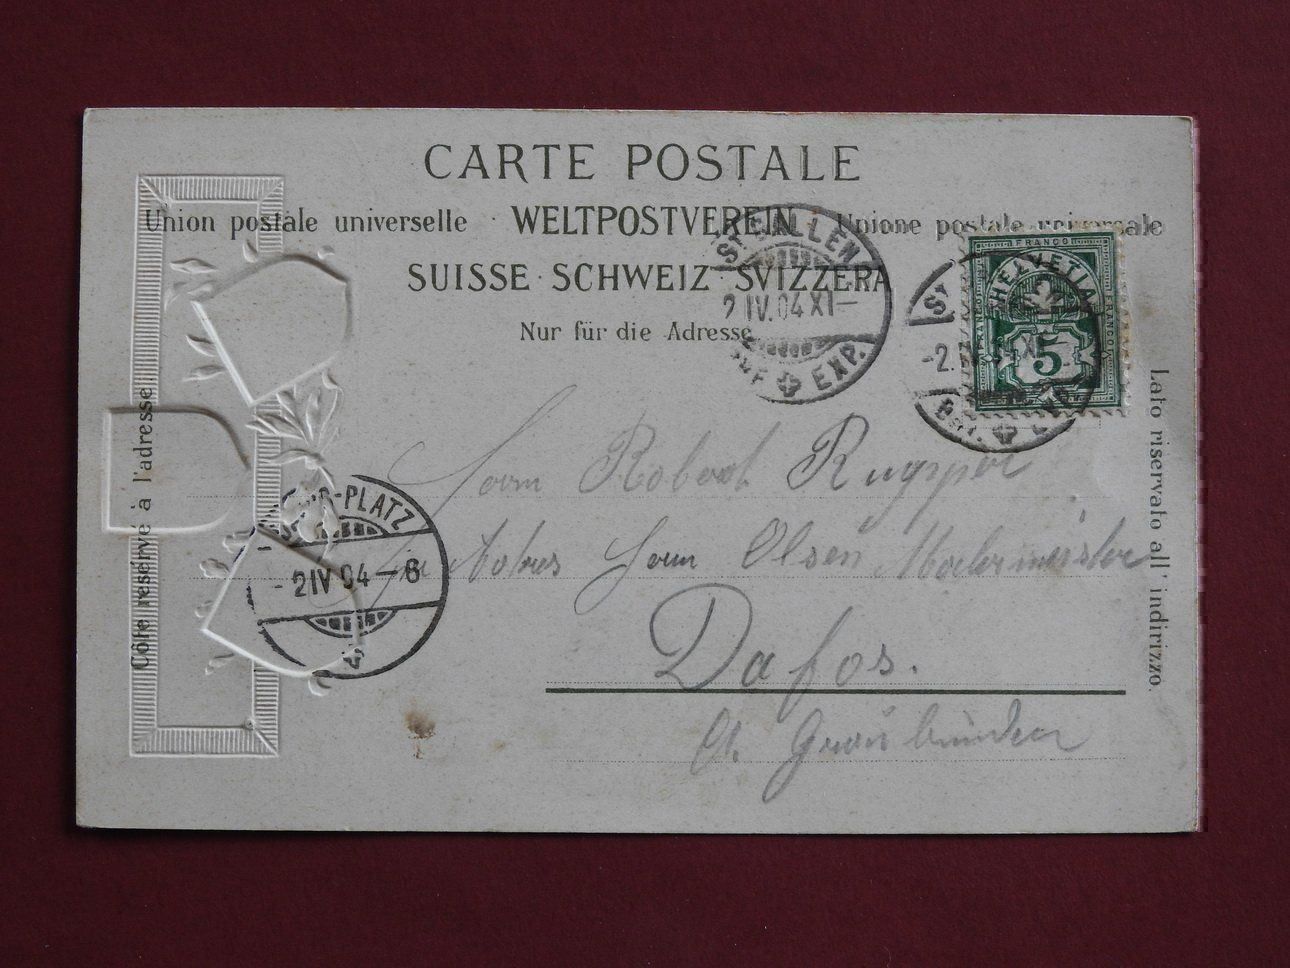 CARTE POSTALE
Union postale universelle · WELTPOSTVEREIN · Unione postale universale
SUISSE · SCHWEIZ · SVIZZERA
Nur für die Adresse
Côté réservé à l'adresse
Lato riservato all' indirizzo.
ST GALLEN
2 IV.04 XI–
EXP.
ST
-2.
FRANCO
HELVETIA
FRANCO
5
-PLATZ
- 2 IV 04 – 8
Herrn Robert
Herrn Olsen Malermeister
Dafos.
Ct. Graubünden